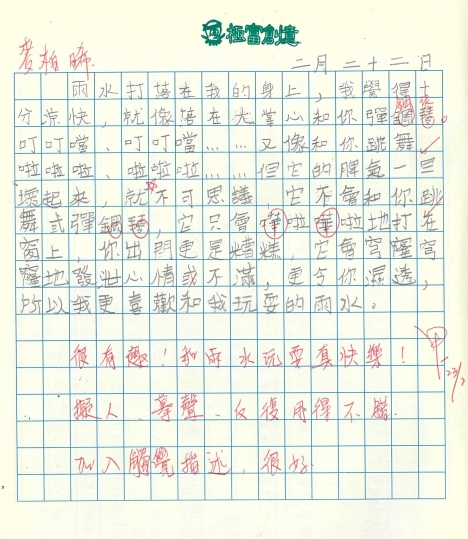 極富創意
麥柏晞
二月二十二日
雨水打落在我的身上，我覺得十
分涼快，就像落在大掌心和你彈鋼琴。
叮叮噹、叮叮噹……又像和你跳舞
啦啦啦、啦啦啦……但它的脾氣一旦
壞起來，就不可思議 它不會和你跳
舞或彈鋼琴，它只會嘩啦嘩啦地打在
窗上，你出門更是糟糕，它會穹窿穹
窿地發泄心情或不滿，更令你濕透，
所以我更喜歡和我玩耍的雨水。
很有趣！和雨水玩耍真快樂！
甲-
23/2
擬人、摹聲、反復用得不錯.
加入觸覺描述，很好.